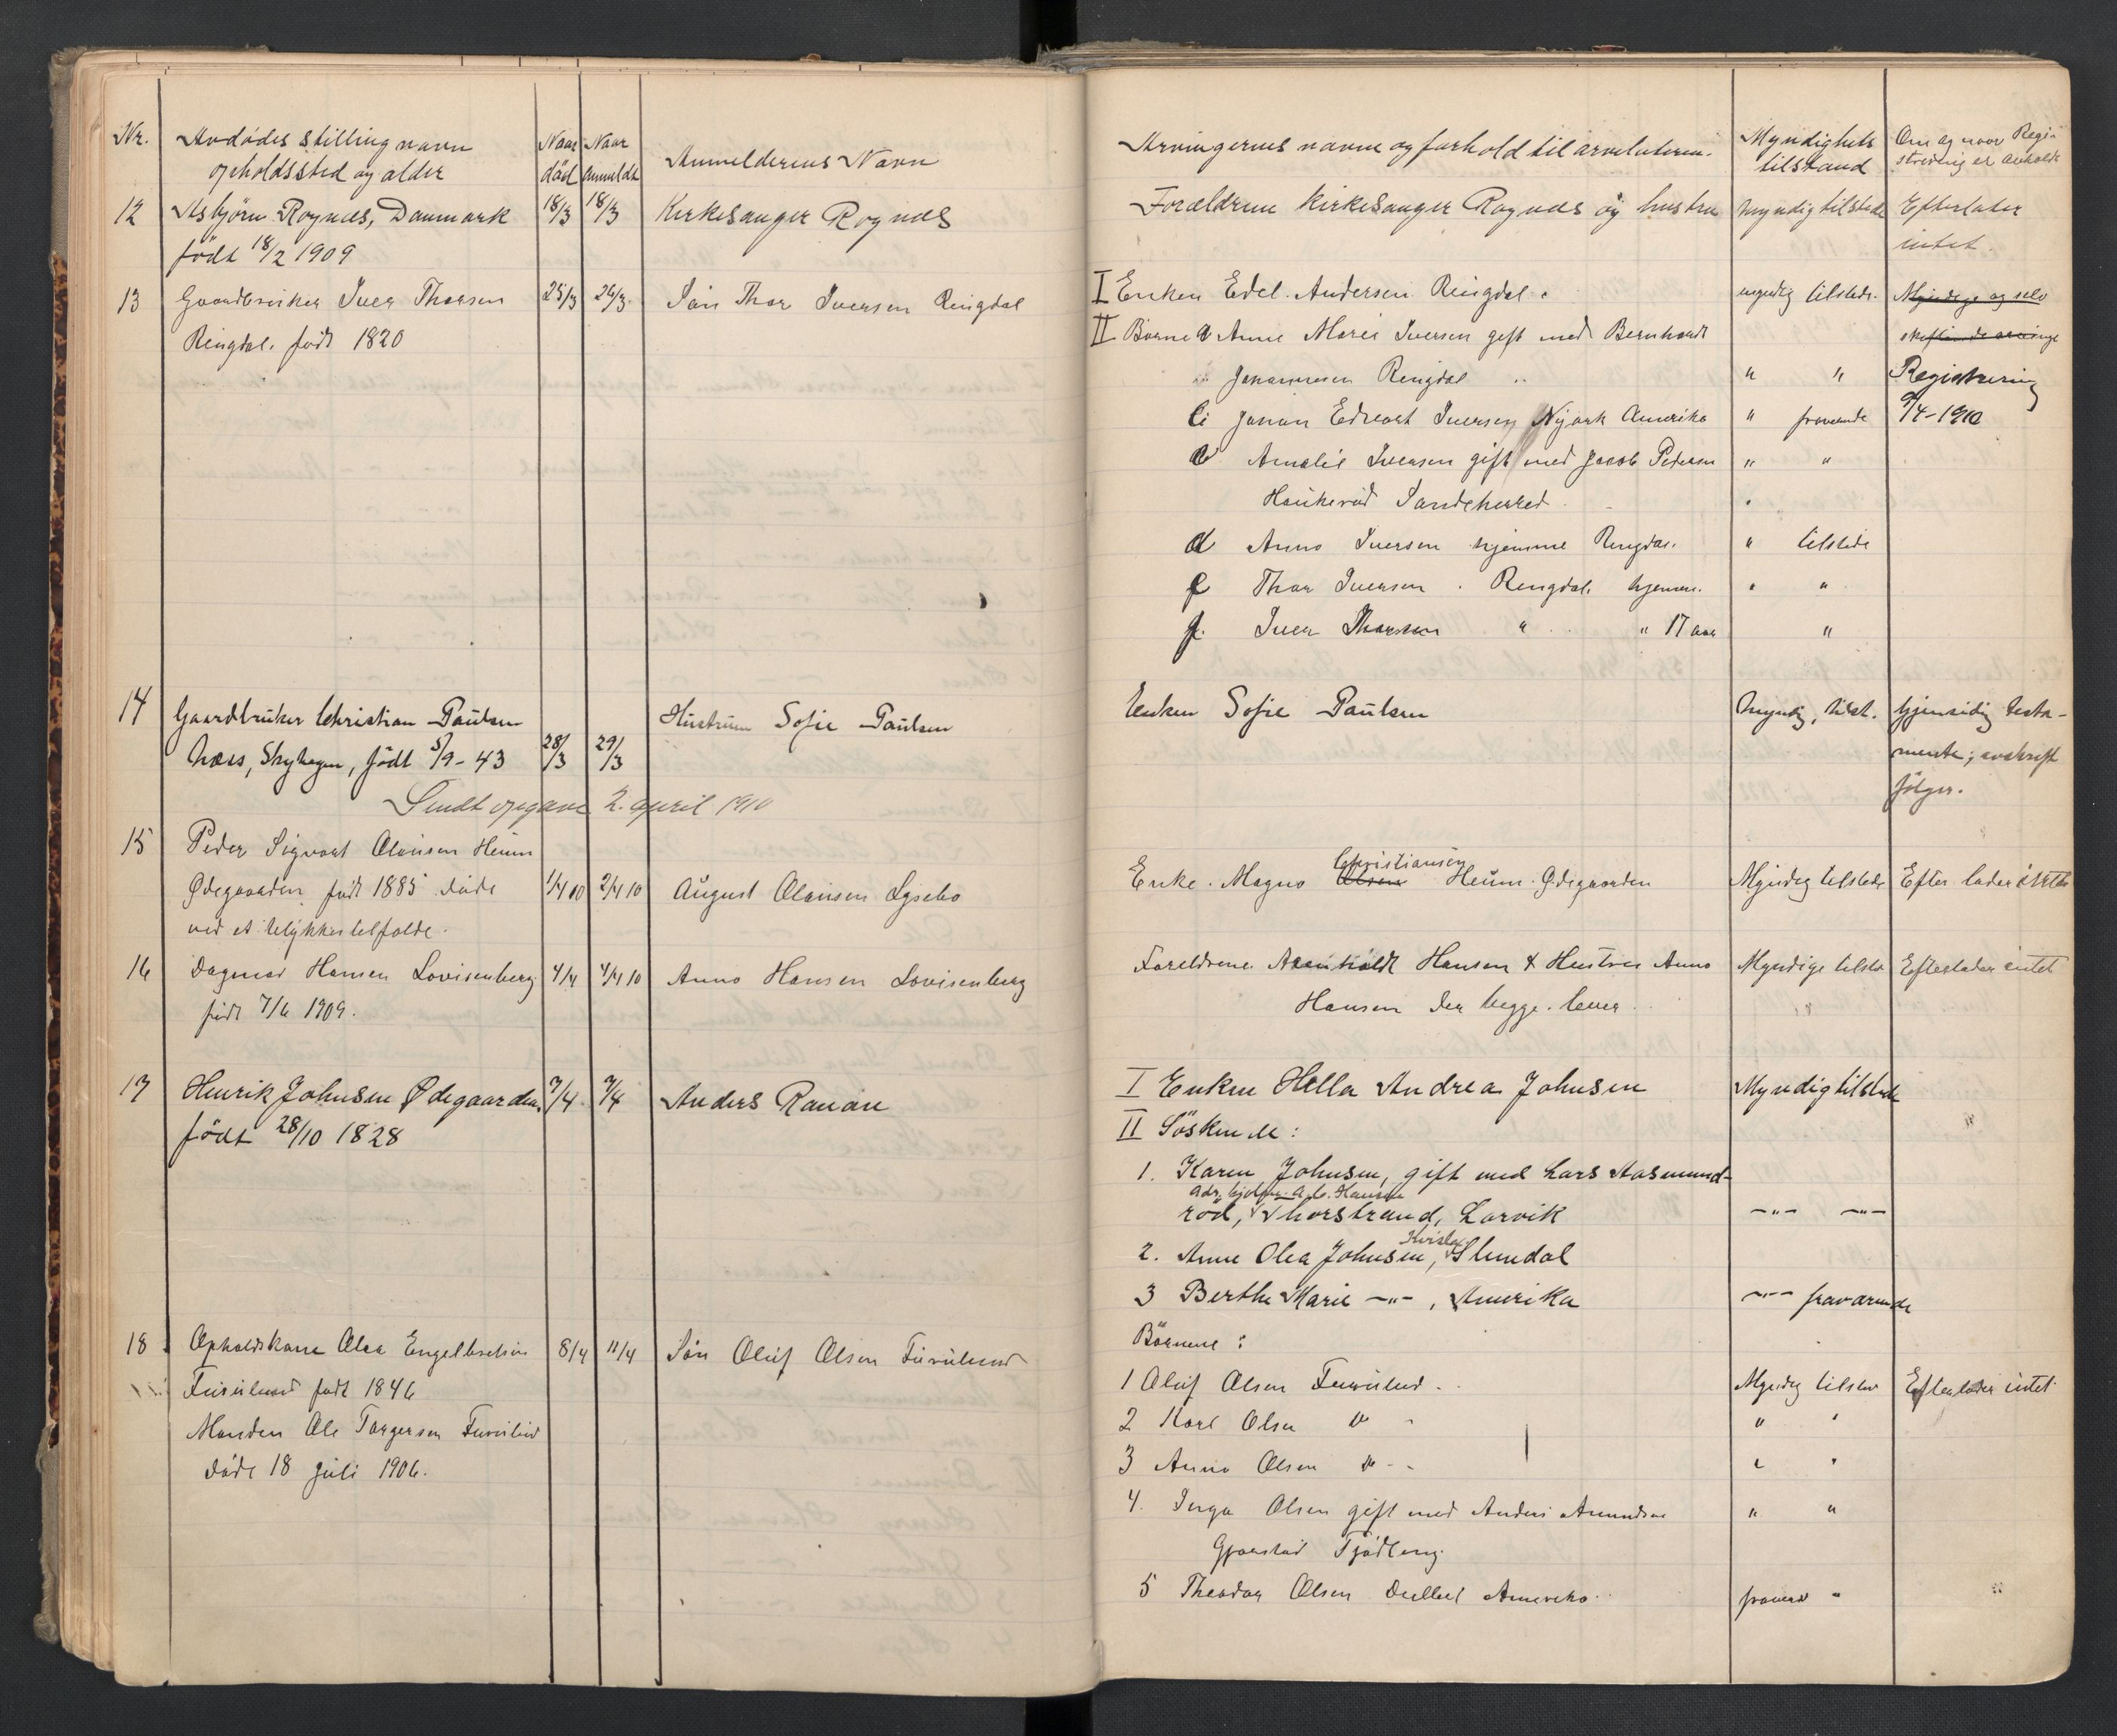 Nr.
Avdödes stilling navn
opholdssted og alder
Naar
död
Naar
anmeldt
Anmelderens Navn
12
Asbjørn Roynæs, Danmark
født 18/2 1909
18/3
18/3
Kirkesanger Roynæs
13
Gaardbruker Iver Thorsen
Ringdal. født 1820
25/3
26/3.
Sön Thor Iversen Ringdal
14
Gaardbruker Christian Paulsen
Næss, født 5/9-43
28/3
29/3
Hustrum Sofie Paulsen
Sendt opgave 2. april 1910
15
Peder Sigvart Olausen Heum
Ødegaarden født 1885 døde
ved et ulykkestilfælde.
1/4 10
2/4 10
August Olausen Lysebo
16
Dagmar Hansen Lovisenberg
født 7/6 1909.
4/4
4/4 10
Anna Hansen Lovisenberg
17
Henrik Johnsen Ødegaarden
født 28/10 1828
7/4
9/4
Anders Ranan
18
Opholdskone Olea Engelbretsen
Furulund født 1846
Manden Ole Torgersen Furulund
døde 18 Juli 1906.
8/4
11/4
Sön Oluf Olsen Furulund
Arvingernes navne og forhold til arvelateren.
Myndighets
tilstand
Om og naar Regi-
strering er avholdt
Forældrene Kirkesanger Roynæs og hustru
Myndig tilstede
Efterlater
intet.
I Enken Edel Andersen Ringdal.
myndig tilstede.
Myndige og selv
skiftende arvinge
II Børne a Anne Marie Iversen gift med Bernhardt
Johannesen Ringdal
" "
Registrering
9/4-1910
b Johan Edvart Iversen Nyork Amerika
" fraværende
c Amalie Iversen gift med Jacob Pedersen
" "
Haukerød Sandeherred
d Anna Iversen hjemme Ringdal.
" tilstede
e Thor Iversen. Ringdal hjemme.
" "
f. Iver Thorsen " " 17 aar
"
Enken Sofie Paulsen
Myndig, tilst.
Gjensidig testa-
mente; avskrift
følger.
Christiansen
Enke. Magna Olsen Heum. Ødegaarden
Myndig tilstede
Efterlader intet
Foreldrene Arenholdt Hansen & Hustru Anna
Hansen der begge lever
Myndige tilste
Efterlader intet
I Enken Hella Andrea Johnsen
Myndig tilstede
II Söskende:
1. Karen Johnsen, gift med Lars Aasmund-
adr. A. C. Hansen
röd, Thorstrand, Larvik
—"— —"—
2. Anne Olea Johnsen, Slemdal
3 Berthe Marie —"—, Amerika
—"— fraværende
Börnene:
1 Oluf Olsen Furulund.
Myndig tilsted
Efterlader intet
2 Karl Olsen "
" "
3 Anna Olsen "
" "
4. Inga Olsen gift med Anders Amundsen
Gjerstad Tjødling
" "
5 Theodor Olsen Amerika.
fraværd "